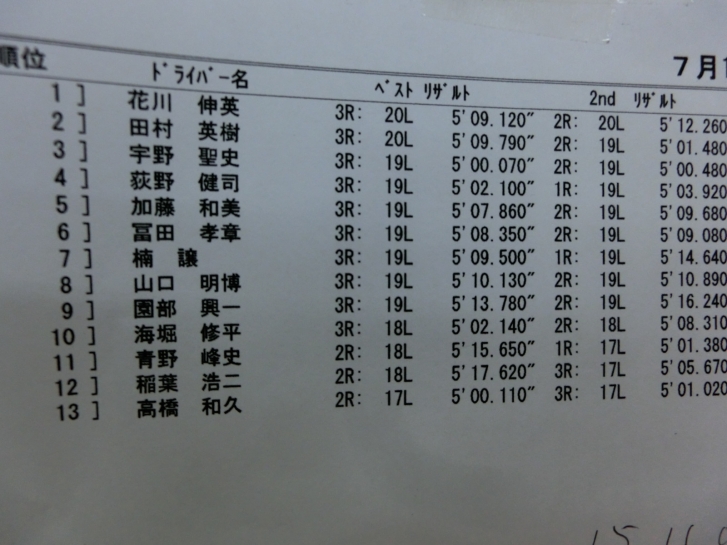 順位 ﾄﾞﾗｲﾊﾞｰ名 ﾍﾞｽﾄ ﾘｻﾞﾙﾄ 2nd ﾘｻﾞﾙﾄ 7月1
1 ] 花川 伸英 3R: 20L 5'09.120" 2R: 20L 5'12.260
2 ] 田村 英樹 3R: 20L 5'09.790" 2R: 19L 5'01.480
3 ] 宇野 聖史 3R: 19L 5'00.070" 2R: 19L 5'00.480
4 ] 荻野 健司 3R: 19L 5'02.100" 1R: 19L 5'03.920
5 ] 加藤 和美 3R: 19L 5'07.860" 2R: 19L 5'09.680
6 ] 冨田 孝章 3R: 19L 5'08.350" 2R: 19L 5'09.080
7 ] 楠 譲 3R: 19L 5'09.500" 1R: 19L 5'14.640
8 ] 山口 明博 3R: 19L 5'10.130" 2R: 19L 5'10.890
9 ] 園部 興一 3R: 19L 5'13.780" 2R: 19L 5'16.240
10 ] 海堀 修平 3R: 18L 5'02.140" 2R: 18L 5'08.310
11 ] 青野 峰史 2R: 18L 5'15.650" 1R: 17L 5'01.380
12 ] 稲葉 浩二 2R: 18L 5'17.620" 3R: 17L 5'05.670
13 ] 高橋 和久 2R: 17L 5'00.110" 3R: 17L 5'01.020